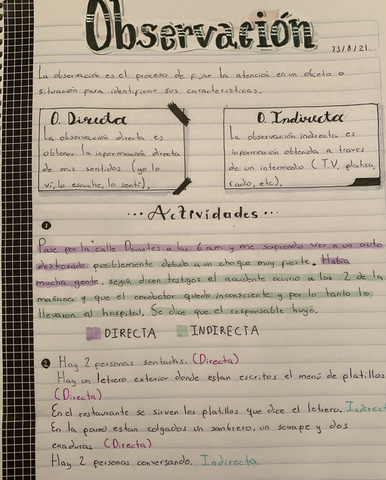 Observación
23/8/21.
La observación es el proceso de fijar la atención en un objeto o
situación para identificar sus características.
O. Directa
La observación directa es
obtener la información directa
de mis sentidos (yo lo
vi, lo escuche, lo senti).
O. Indirecta
La observación indirecta es
información obtenida a traves
de un intermedio (T.V, platica,
radio, etc).
...Actividades...
1
Pase por la calle Donantes a las 6 am y me sorprendio ver a un auto
destrosado posiblemente debido a un choque muy fuerte. Habia
mucha gente, según dicen testigos el accidente ocurrio a las 2 de la
mañana y que el conductor quedo inconsciente y por lo tanto lo
llevaron al hospital. Se dice que el responsable huyo.
DIRECTA INDIRECTA
2 Hay 2 personas sentadas. (Directa)
Hay un letrero exterior donde estan escritos el menú de platillos
(Directa)
En el restaurante se sirven los platillos que dice el letrero. Indirect
En la pared estan colgados un sombrero, un sarape y dos
(Directa)
Hay 2 personas conversando. Indirecta